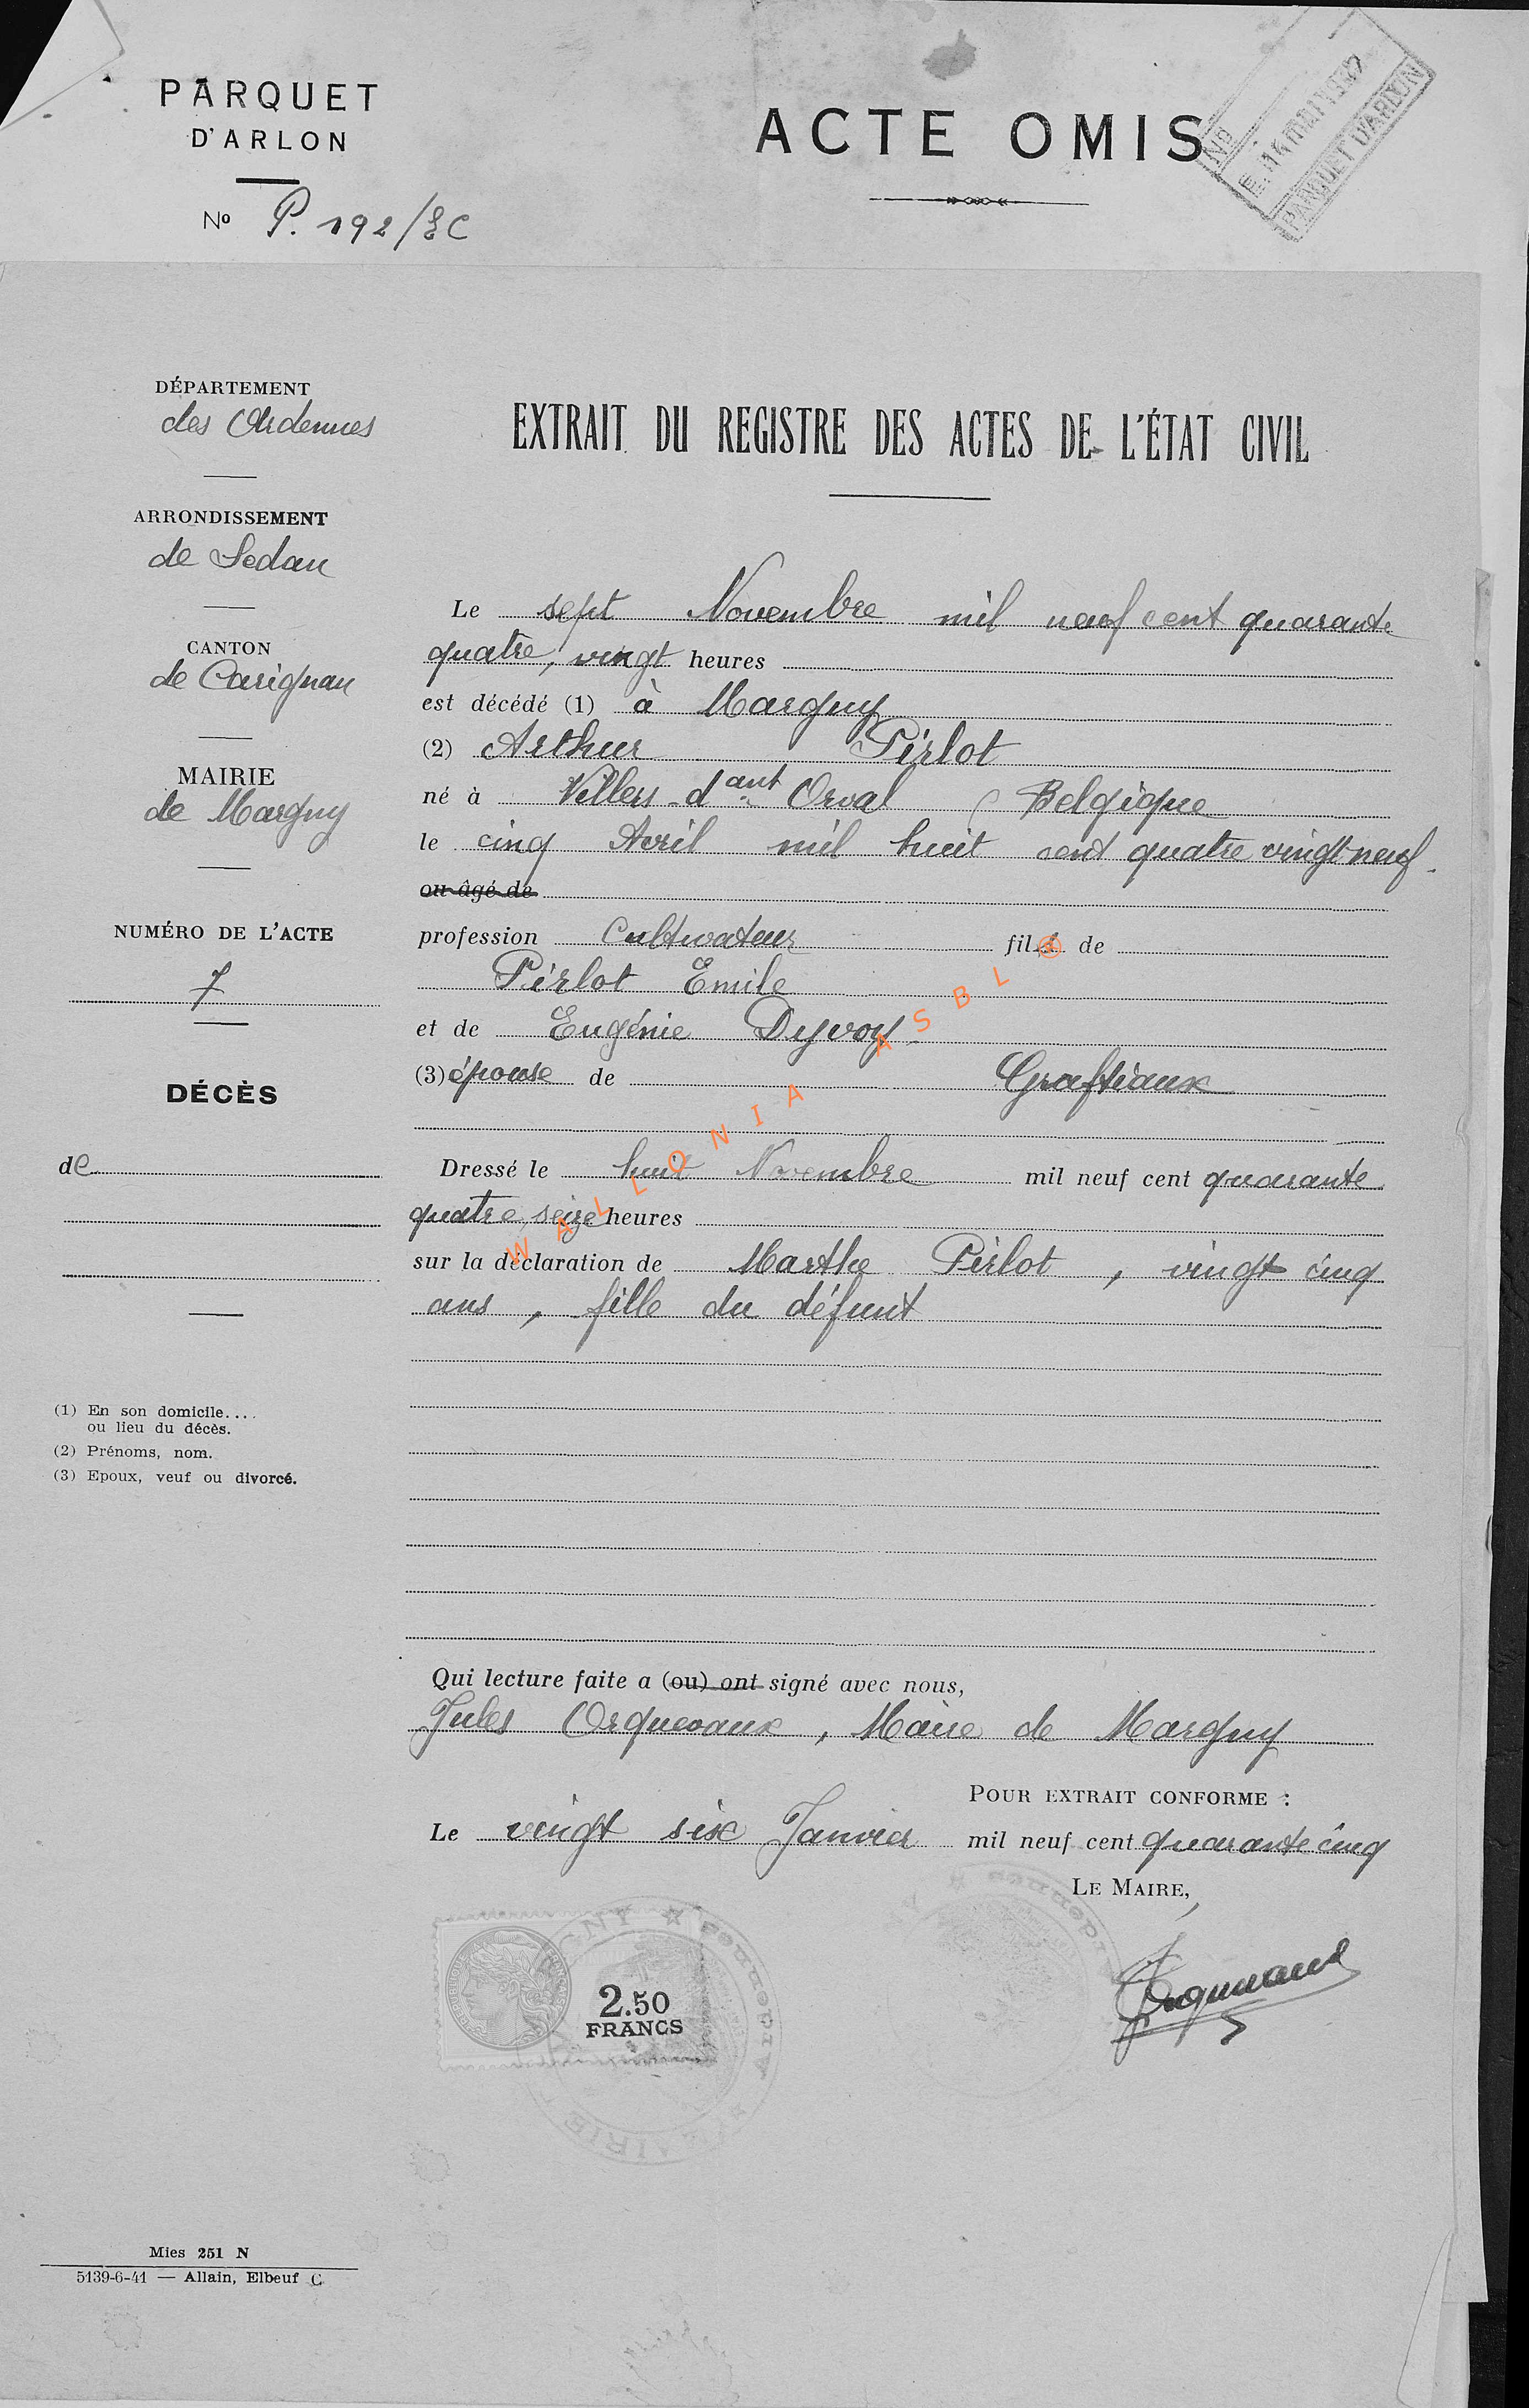 PARQUET
D'ARLON
No P. 192/EC
ACTE OMIS
No
E. 14 MAI 19
PARQUET D'ARLON
DÉPARTEMENT
des Ardennes
ARRONDISSEMENT
de Sedan
CANTON
de Carignan
MAIRIE
de Margny
NUMÉRO DE L'ACTE
7
DÉCÈS
de
(1) En son domicile....
ou lieu du décès.
(2) Prénoms, nom.
(3) Epoux, veuf ou divorcé.
EXTRAIT DU REGISTRE DES ACTES DE L'ÉTAT CIVIL
Le sept Novembre mil neuf cent quarante
quatre, vingt heures
est décédé (1) à Margny
(2) Arthur Pirlot
né à Villers-dant Orval (Belgique
le cinq Avril mil huit cent quatre vingt neuf.
ou âgé de
profession Cultivateur fils de
Pirlot Emile
et de Eugénie Dyvoy
(3) épouse de Graftiaux
Dressé le huit Novembre mil neuf cent quarante
quatre, seize heures
sur la déclaration de Marthe Pirlot, vingt cinq
ans, fille du défunt
WALLONIA ASBL ®
Qui lecture faite a (ou) ont signé avec nous,
Jules Orquevaux, Maire de Margny
POUR EXTRAIT CONFORME :
Le vingt six Janvier mil neuf cent quarante cinq
LE MAIRE,
Orquevaux
2.50
FRANCS
MAIRIE
GNY ☆ Ardennes
Ardennes
Mies 251 N
5139-6-41 — Allain, Elbeuf C